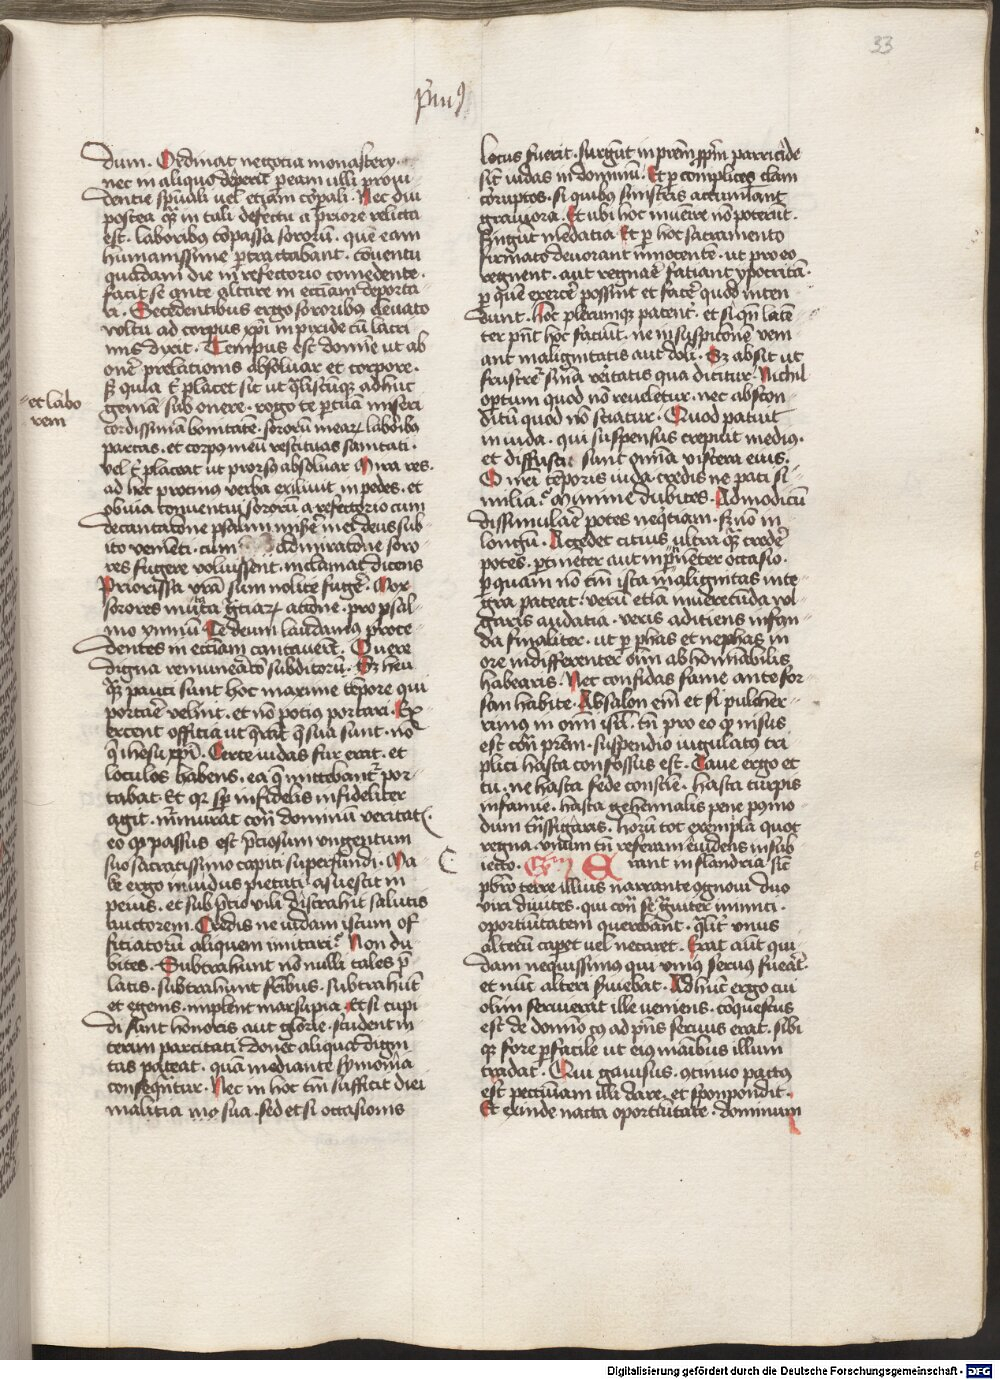 33
pri(mus)
dum. Ordinat negocia monastery.
nec in aliquo deperit p eam illi proui
dentie spũali uel etiam corpali. Nec diu
postea qz in tali defectu a priore relicta
est. laboribus cõpassa sororũ. que eam
humanissime ptractabant. cõuentu
quadam die in refectorio comedente.
facit se ante altare in eccliam deporta
ri. Secedentibus ergo sororibus eleuato
voltu ad corpus xpi in pixide cũ lacri
mis dixit. Tempus est domine ut ab
onere prelationis absoluar et corpore.
S quia t placet sic ut qliscũqz adhuc
gemã sub onere. rogo te ptuã miseri
et labo
rem
cordissimã bonitatem. sororũ mearz laboribus
parcas. et corpus meũ restituas sanitati.
vel t placeat ut prorsus absoluar Mira res.
ad hec procinus verba exiliuit in pedes. et
obuia conuentui sororũ a refectorio cum
decantatione psalmi miserere mei deus sub
ito venieti. cum admiratione soro
res fugere voluissent. inclamat dicens
Priorissa vrã sum nolite fugere. Mox
sorores mutata gratiarz actione. pro psal
mo ymnũ Te deum laudamus proce
dentes in eccliam cantauert. Quere
digna remuneratio subditorũ. Sz heu
qz pauci sunt hoc maxime tẽpore qui
portare velint. et nõ potius portari. Ex
ercent officia ut querant que sua sunt. nõ
q ihesu xpi. Certe iudas fur erat. et
loculos habens. ea q mittebantur por
tabat. Et qz semp infidelis infideliter
agit. murmurat cõtra dominũ veritatis.
eo qz passus est preciosum vngentum
suo sacratissimo capiti superfundi. Ma
le ergo inuidus pietati asuescit in
peius. et sub precio vili distrahit salutis
auctorem. Credis ne iudam istum of
ficiatorũ aliquem imitari? Non du
bites. Subtrahunt nõnulli tales pre
latis. subtrahunt fribus. subtrahũt
et egenis. implent marsupia. Et si cupi
di sunt honoris aut glorie. student in
terim parcitati. donec aliqua digni
tas pateat. quã mediante symonia
consequantur. Nec in hoc tm sufficit diei
malitia mo sua. sed et si occasionis
locus fuerit. surgunt in prem spm parricide
sicut iudas in dominũ. Et p complices clam
coruptos. si quibus sinistris accumlant
grauiora. Et ubi hoc inuenire nõ poterunt.
fingunt mendatia Et p hoc sacramento
firmato deuorant innocente. ut pro eo
regnent. aut regnare faciant ypocritã.
p quẽ exercere possint et facere quod inten
dunt. Hoc plerumqz patent. et si qñ laten
ter pñt hoc faciunt. ne in suspicionẽ veni
ant malignitatis aut doli. Sz absit ut
frustretur sñia veritatis qua dicitur. Nichil
optum quod nõ reueletur. nec abscon
ditũ quod nõ sciatur. Quod patuit
in iuda. qui suspensus crepuit medius.
et diffusa sunt omnia viscera eius.
O nri tẽporis iuda credis ne pati si
milia? Minime dubites. Ad modicũ
dissimulare potes nequitiam. sz nõ in
longũ. Accedet citius ultra qz credere
potes. ptineter aut inptineter occasio.
p quam nõ tm ista malignitas inte
gra pateat. verũ etiã inuerecũda vul
garis audatia. veris adiciens infan
da finaliter. ut p phas et nephas in
ore indifferenter oim abhominabilis
habearis. Nec confidas fame ante for
san habite. Absalon em et si pulcher
rimus in omi isrl. tn pro eo qz nisus
est cõtra prem. suspendio iugulatus tri
plici hasta confossus est. Caue ergo et
tu. ne hasta fede conscie. hasta turpis
infamie. hasta gehennalis pene pmo
dum transfigaris. horũ tot exempla quot
regna. vnum tn referam euidens in sub
iecto. Exm Erant in flandria sicut
pbro terre illius narrante cognoui duo
viri diuites. qui contra se grauiter inimici.
oportunitatem querebant. qualiter vnus
alterũ caperet uel necaret. Erat aũt qui
dam nequissimus qui vnius seruus fuerat.
et nũc alteri seruiebat. Ad hunc ergo cui
olim seruierat ille veniens. cõquestus
est de domino cui ad pñs seruus erat. sibi
qz fore pfacile ut eius manibus illum
tradat. Qui gauisus. cõtinuo pactus
est pecuniam illi dare. et spopondit.
Et exinde nacta oportunitate. dominum
Digitalisierung gefördert durch die Deutsche Forschungsgemeinschaft - DFG